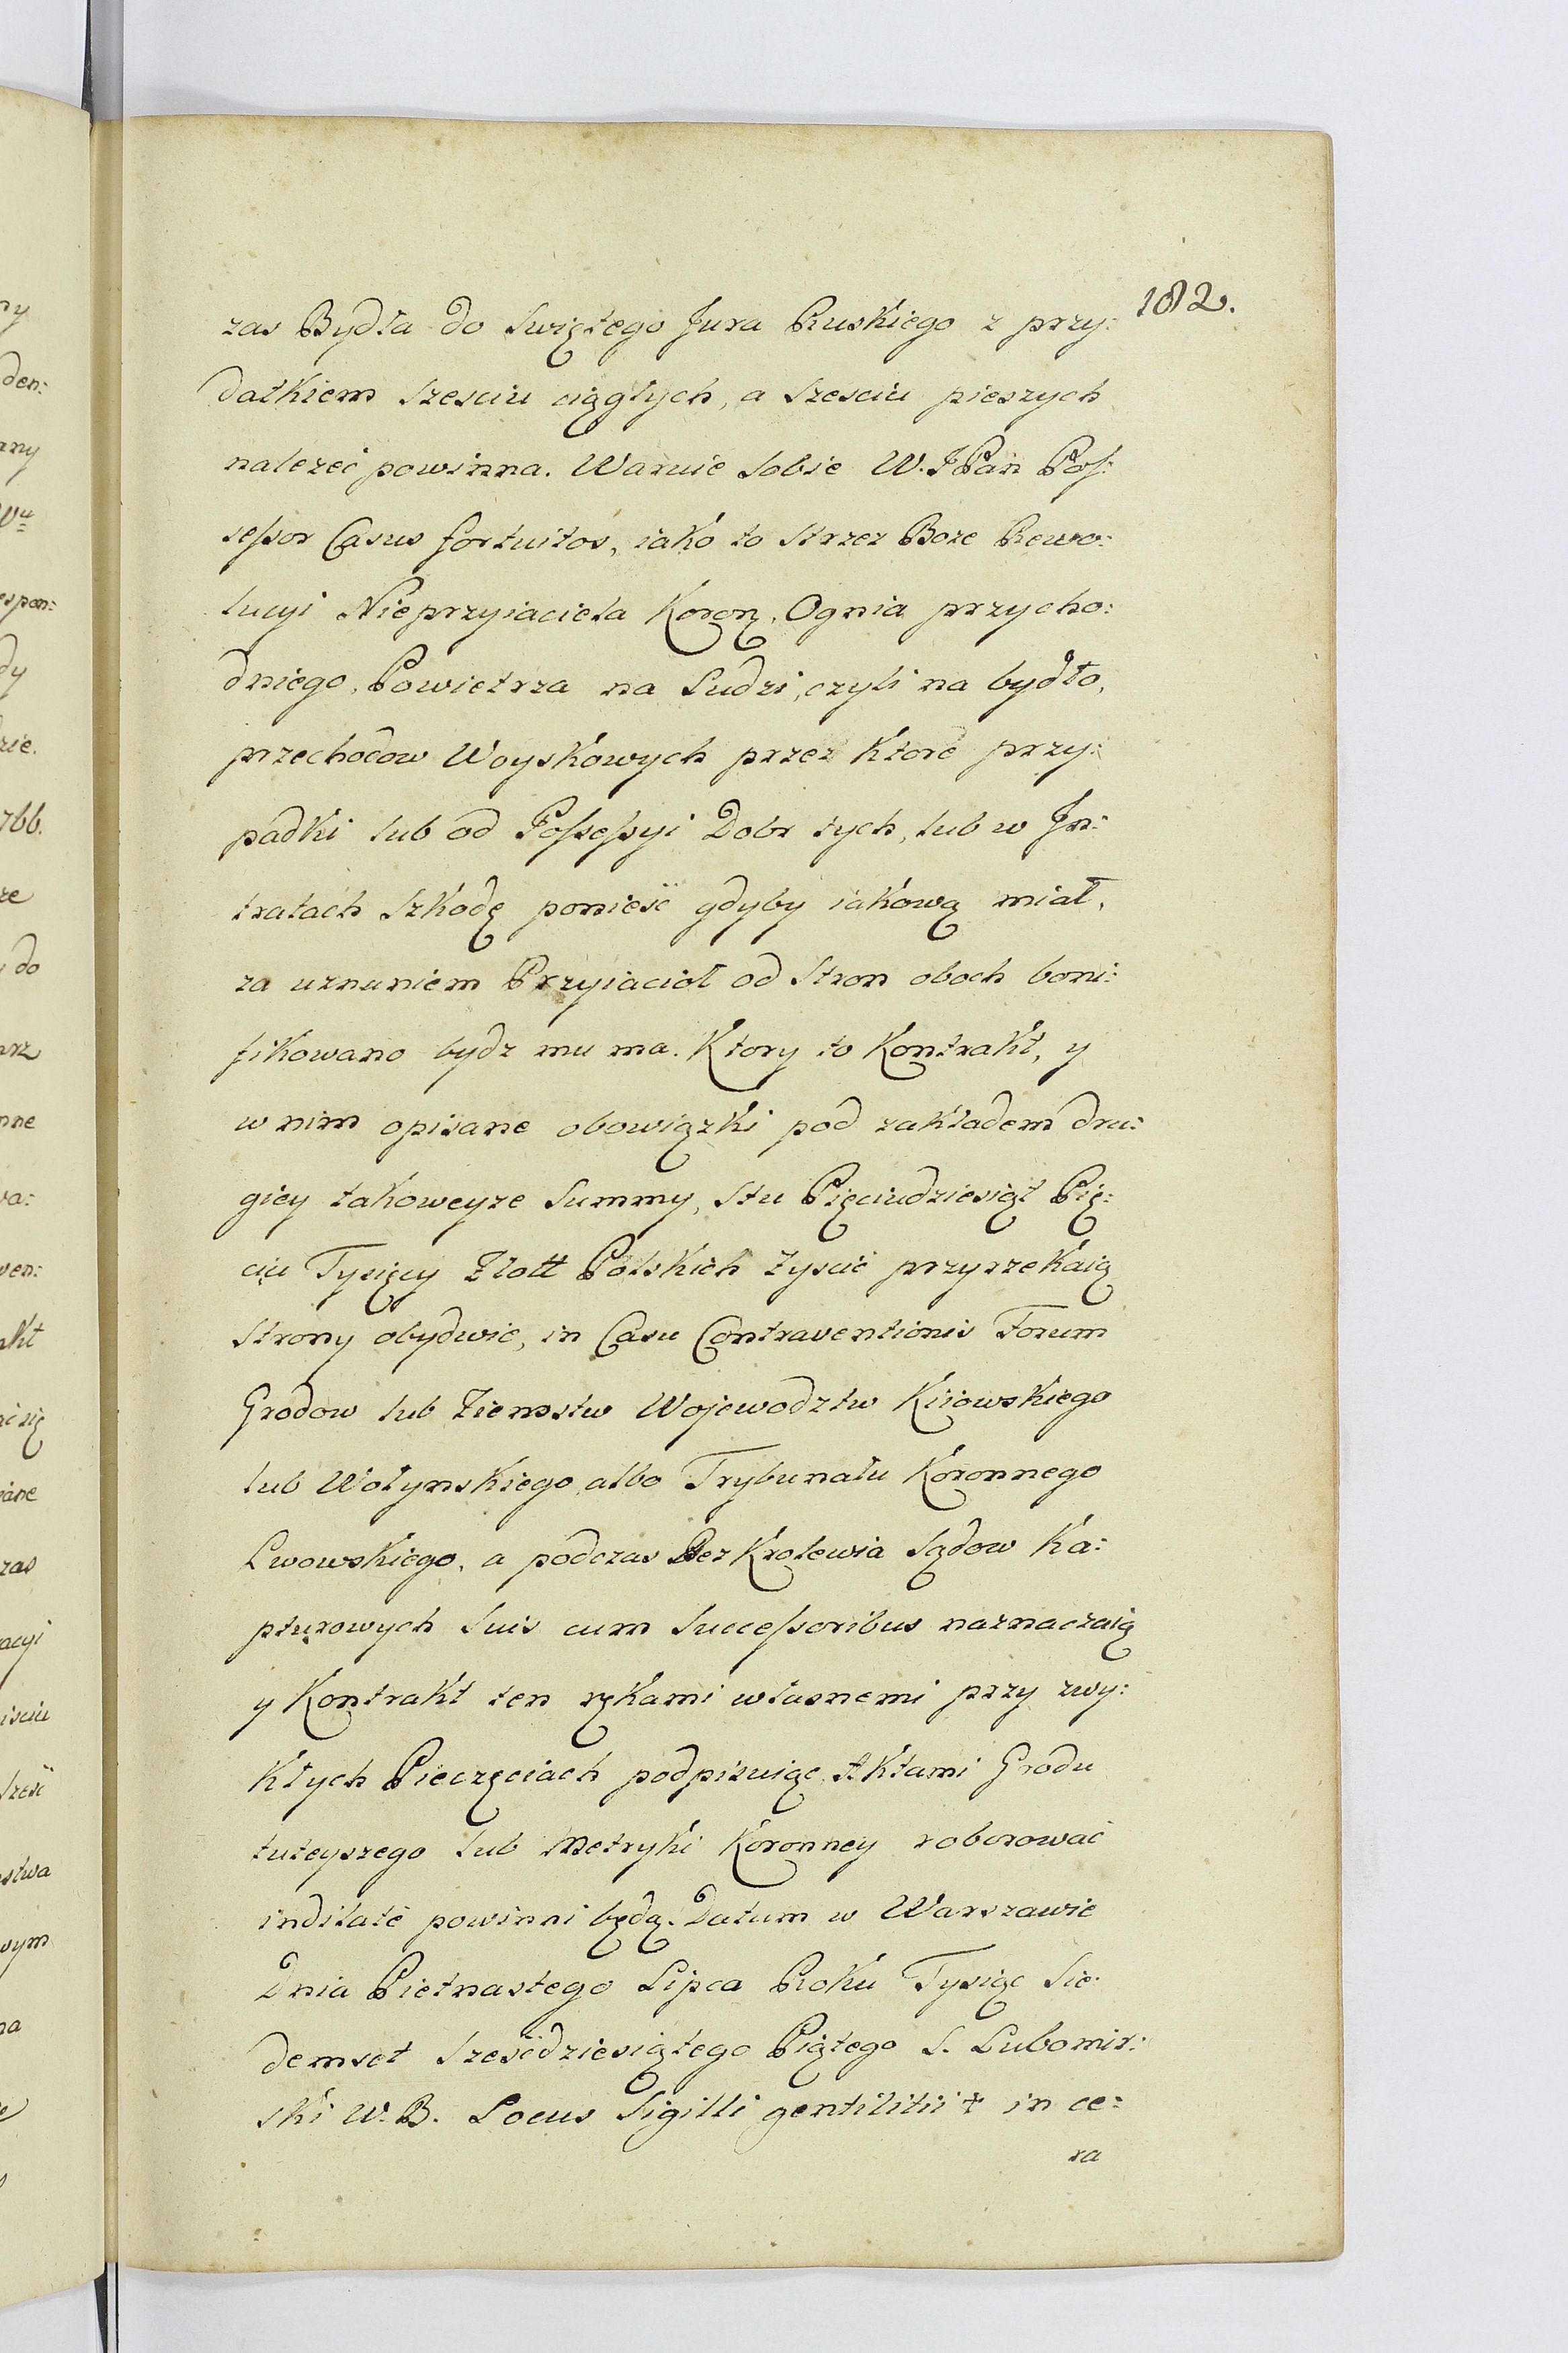 182.
zas Bydła do Swiętego Jura Ruskiego z przy:
datkiem Szesciu ciągłych, a Szesciu pieszych
należeć powinna. Waruie Sobie W. JPan Pos:
sessor Casus fortuitos, iako to Strzez Boze Rewo:
lucyi Nieprzyiaciela Koron, Ognia przycho:
dniego, Powietrza na Ludzi, czyli na bydło,
przechodow Woyskowych przez ktore przy:
padki lub od Possessyi Dobr tych, lub w In:
tratach Szkodę ponieść gdyby iakową miał,
za uznaniem Przyiacioł od Stron oboch boni:
fikowano bydz mu ma. Ktory to Kontrakt, y
w nim opisane obowiązki pod zakładem dru:
giey takoweyze Summy, Stu Pięciudziesiąt Pię:
ciu Tysięcy Złott Polskich Zyscić przyrzekaią
Strony obydwie, in Casu Contraventionis Forum
Grodow lub Ziemstw Wojewodztw Kiiowskiego
lub Wołynskiego albo Trybunału Koronnego
Lwowskiego, a podczas Bez Krolewia Sądow Ka:
pturowych Suis cum Successoribus naznaczaią
y Kontrakt ten rękami własnemi przy zwy:
kłych Pieczęciach podpisuiąc Aktami Grodu
tuteyszego lub Metryki Koronney roborować
indilatè powinni będą. Datum w Warszawie
Dnia Pietnastego Lipca Roku Tysiąc Sie:
demset Sześćdziesiątego Piątego S. Lubomir:
ski W. B. Locus Sigilli gentilitii + in ce:
ra